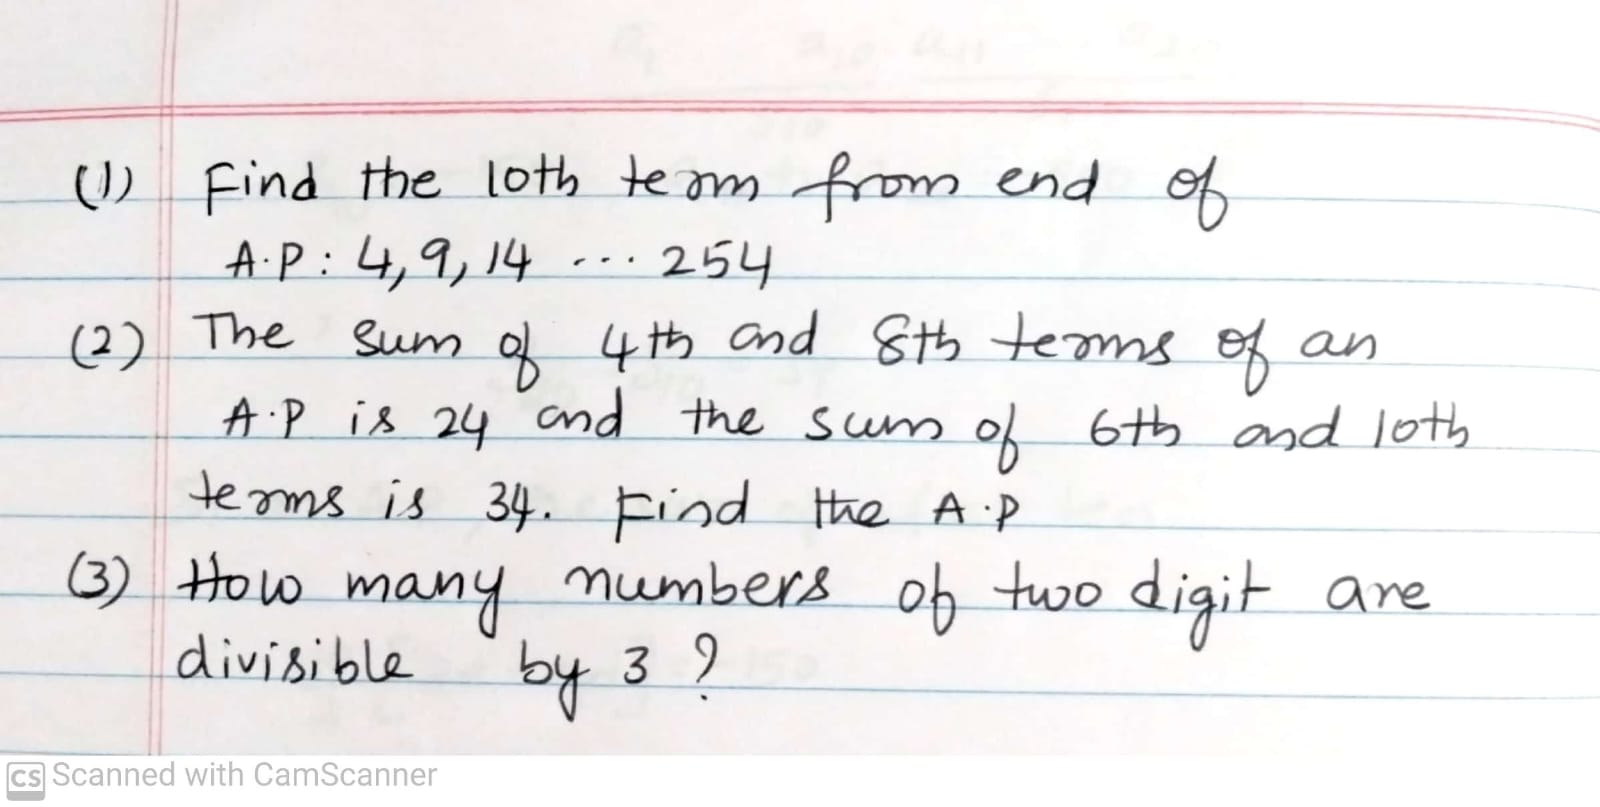 (1) Find the 10th term from end of
A.P : 4, 9, 14 ... 254
(2) The sum of 4th and 8th terms of an
A.P is 24 and the sum of 6th and 10th
terms is 34. Find the A.P
(3) How many numbers of two digit are
divisible by 3 ?
CS Scanned with CamScanner